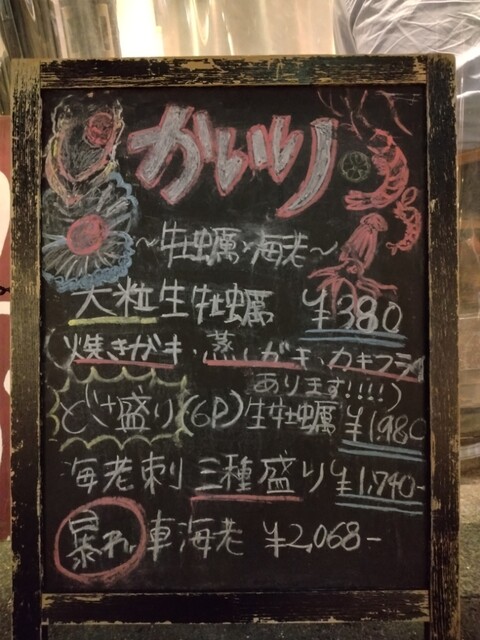 かいり
～牡蠣×海老～
大粒生牡蠣 ¥380
焼きガキ・蒸しガキ・カキフライ
あります!!!!)
どけ盛り(6P)生牡蠣 ¥1,980
海老刺三種盛り ¥1,740-
暴れ車海老 ¥2,068-